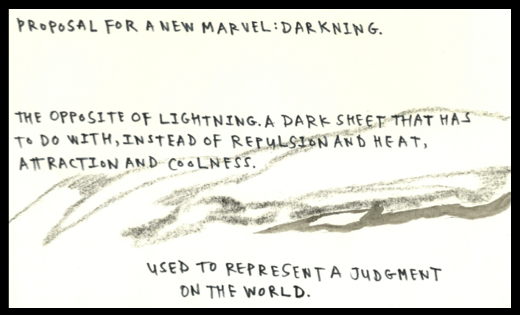 PROPOSAL FOR A NEW MARVEL: DARKNING.
THE OPPOSITE OF LIGHTNING. A DARK SHEET THAT HAS
TO DO WITH, INSTEAD OF REPULSION AND HEAT,
ATTRACTION AND COOLNESS.
USED TO REPRESENT A JUDGMENT
ON THE WORLD.